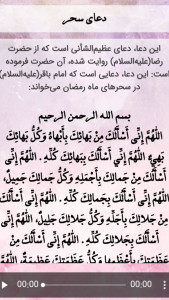 دعای سحر
این دعا، دعای عظیم‌الشأنی است که از حضرت
رضا(علیه‌السلام) روایت شده، آن حضرت فرموده
است: این دعا، دعایی است که امام باقر(علیه‌السلام)
در سحرهای ماه رمضان می‌خواند:
بسم الله الرحمن الرحیم
اَللّهُمَّ اِنّی اَسْأَلُكَ مِنْ بَهائِكَ بِأَبْهاهُ وَكُلُّ بَهائِكَ
بَهِیٌّ اَللّهُمَّ اِنّی اَسْأَلُكَ بِبَهائِكَ كُلِّهِ . اَللّهُمَّ اِنّی
اَسْأَلُكَ مِنْ جَمالِكَ بِأَجْمَلِهِ وَكُلُّ جَمالِكَ جَمیلٌ
اَللّهُمَّ اِنّی اَسْأَلُكَ بِجَمالِكَ كُلِّهِ . اَللّهُمَّ اِنّی اَسْأَلُكَ
مِنْ جَلالِكَ بِأَجَلِّهِ وَكُلُّ جَلالِكَ جَلیلٌ، اَللّهُمَّ اِنّی
اَسْأَلُكَ بِجَلالِكَ كُلِّهِ . اَللّهُمَّ اِنّی اَسْأَلُكَ مِنْ
عَظَمَتِكَ بِأَعْظَمِها وَكُلُّ عَظَمَتِكَ عَظیمَةٌ، اَللّهُمَّ
00:00 00:00